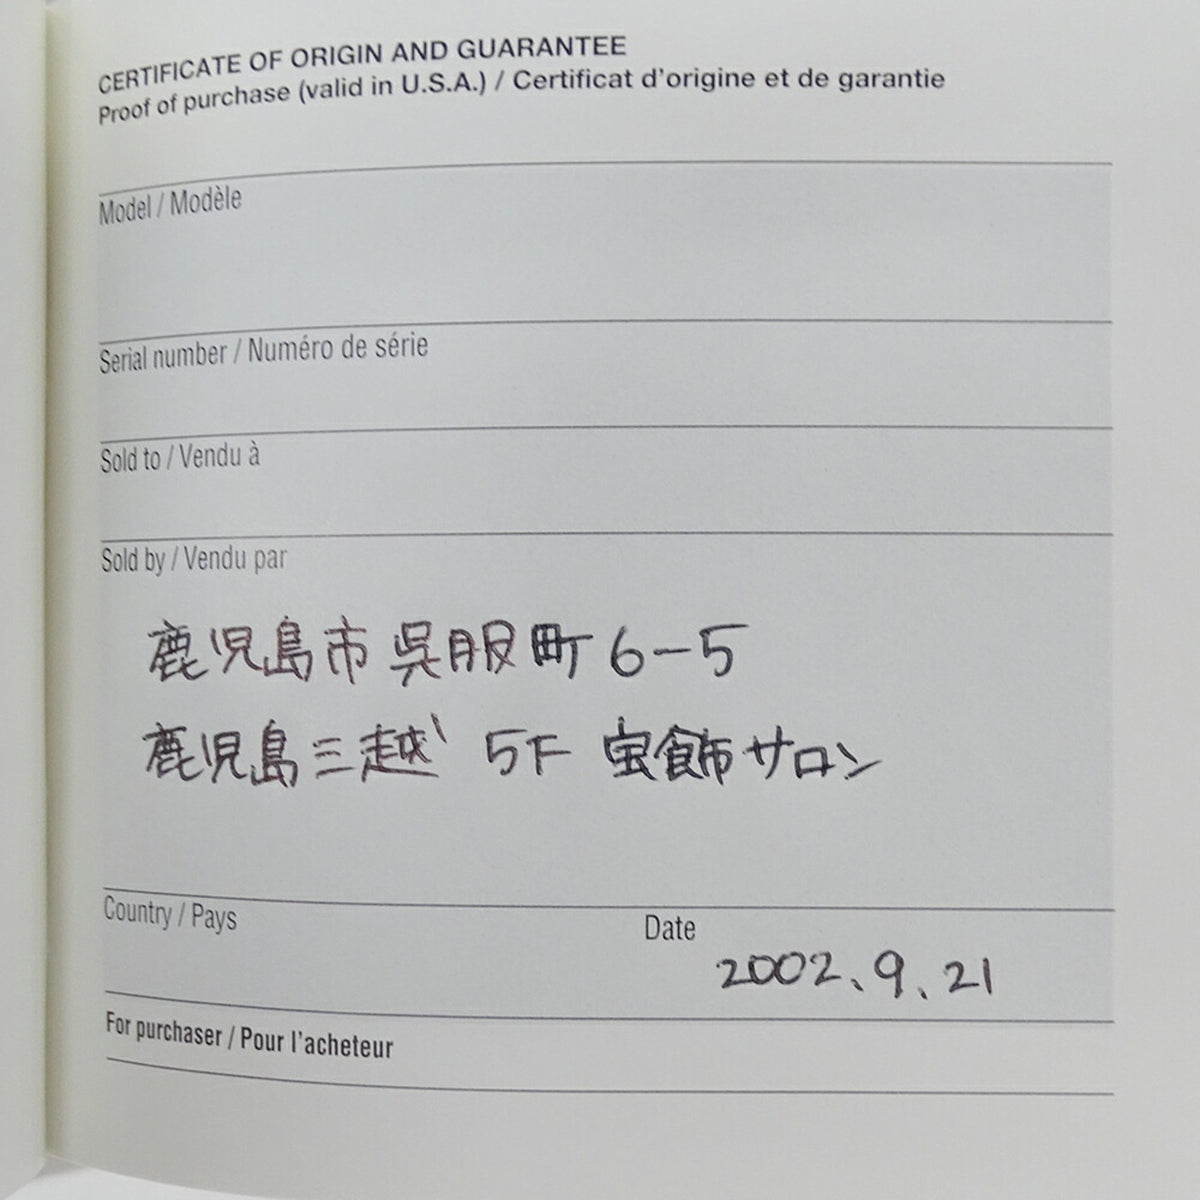 CERTIFICATE OF ORIGIN AND GUARANTEE
Proof of purchase (valid in U.S.A.) / Certificat d'origine et de garantie
Model / Modèle
Serial number / Numéro de série
Sold to / Vendu à
Sold by / Vendu par
鹿児島市呉服町6-5
鹿児島三越 5F 宝飾サロン
Country / Pays
Date
2002.9.21
For purchaser / Pour l'acheteur